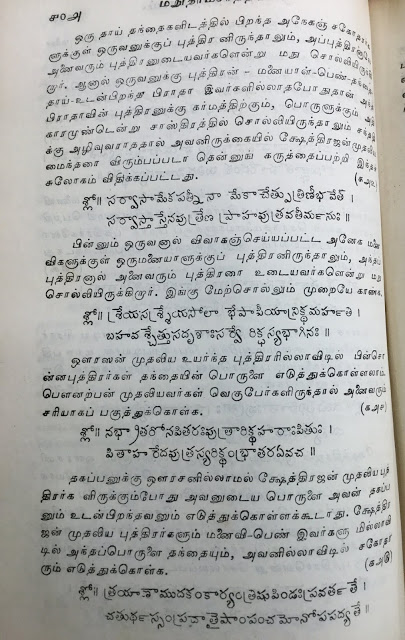 ௪௦௮
ஒரு தாய் தந்தைகளிடத்தில் பிறந்த அநேகஞ் சகோதரர்க
ளுக்குள் ஒருவனுக்குப் புத்திர னிருந்தாலும், அப்புத்திரனாலே
அனைவரும் புத்திரனுடையவர்களென்று மது சொல்லியிருக்கி
றார். ஆனால் ஒருவனுக்குப் புத்திரன் - மனையாள்-பெண்-தந்தை
தாய்-உடன்பிறந்த பிராதா இவர்களில்லாதபோதுதான் அந்த
பிராதாவின் புத்திரனுக்கு கர்மத்திற்கும், பொருளுக்கும் அதி
காரமுண்டென்று சாஸ்திரத்தில் சொல்லியிருந்தாலும் சந்ததி
க்கு அழிவுவாராததால் அவனிருக்கையில் க்ஷேத்திரஜன்முதலிய
மைந்தரை விரும்பப்படா தென்னுங் கருத்தைப்பற்றி இந்தச்
சுலோகம் விதிக்கப்பட்டது.
ஶ்லோ॥ సర్వాసామేకపత్నీ నా మేకాచేత్పుత్రిణీభవేత్
సర్వాస్తాస్తేనపుత్రేణ ప్రాహపుత్రవతీర్మనుః॥
பின்னும் ஒருவனால் விவாகஞ்செய்யப்பட்ட அனேக மனை
விகளுக்குள் ஒருமனையாளுக்குப் புத்திரனிருந்தாலும், அந்தப்
புத்திரனால் அனைவரும் புத்திரரை உடையவர்களென்று மநு
சொல்லியிருக்கிறார். இங்கு மேற்சொல்லும் முறையே காண்க.
ஶ்லோ॥ శ్రేయసశ్శ్రేయసోలా భేపాపీయాన్రిక్థమర్హతి
బహవశ్చేత్తుసదృశాః సర్వే రిక్థస్యభాగినః॥
ஔரஸன் முதலிய உயர்ந்த புத்திரரில்லாவிடில் பின்சொ
ன்னபுத்திரர்கள் தந்தையின் பொருளை எடுத்துக்கொள்ளலாம்.
பௌனற்பன் முதலியவர்கள் வெகுபேர்களிருந்தால் அனைவரும்
சரியாகப் பகுத்துக்கொள்க. (௧௮௪)
ஶ்லோ॥ నభ్రాతరోనపితరఃపుత్రారిక్థహరాఃపితుః
పితాహరేదపుత్రస్యరిక్థంభ్రాతరఏవచ॥
தகப்பனுக்கு ஔரசனில்லாமல் க்ஷேத்திரஜன் முதலியபுத்
திரர்க ளிருக்கும்போது அவனுடைய பொருளை அவன் தகப்ப
னும் உடன்பிறந்தவனும் எடுத்துக்கொள்ளக்கூடாது. க்ஷேத்திர
ஜன் முதலிய புத்திரர்களும் மனைவி-பெண் இவர்களு மில்லாவி
டில் அந்தப்பொருளை தந்தையும், அவனில்லாவிடில் சகோதர
ரும் எடுத்துக்கொள்க. (௧௮௫)
ஶ்லோ॥ త్రయాణాముదకంకార్యంత్రిషుపిండఃప్రవర్తతే
చతుర్థస్సంప్రదాతైషాంపంచమోనోపపద్యతే॥